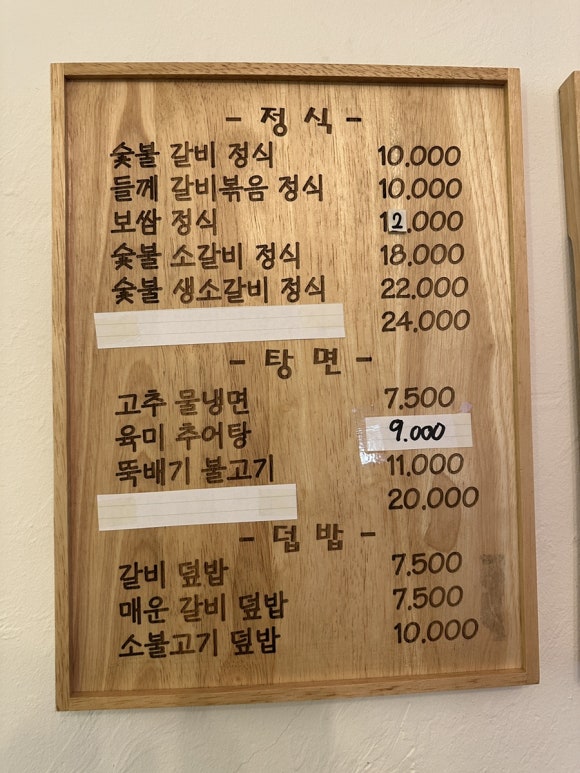 - 정 식 -
숯불 갈비 정식 10.000
들께 갈비볶음 정식 10.000
보쌈 정식 12.000
숯불 소갈비 정식 18.000
숯불 생소갈비 정식 22.000
24.000
- 탕 면 -
고추 물냉면 7.500
육미 추어탕 9.000
뚝배기 불고기 11.000
20.000
- 덥 밥 -
갈비 덮밥 7.500
매운 갈비 덮밥 7.500
소불고기 덮밥 10.000